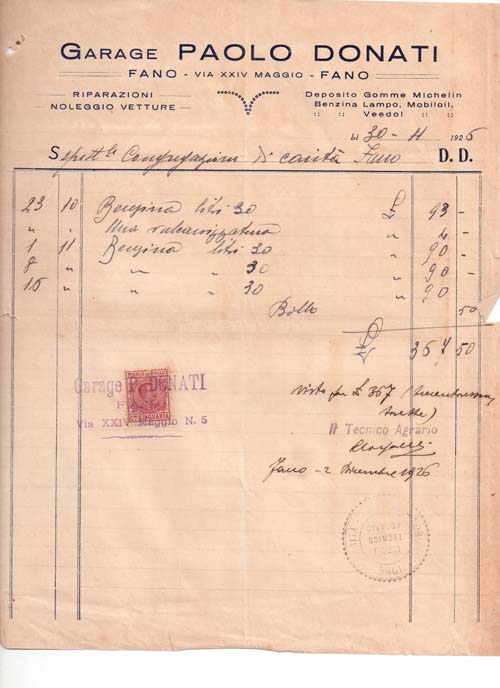 GARAGE PAOLO DONATI
FANO - VIA XXIV MAGGIO - FANO
RIPARAZIONI
NOLEGGIO VETTURE
Deposito Gomme Michelin
Benzina Lampo, Mobiloil,
:: :: Veedol :: ::
li 30 - 11 1926
Spett.le Congregazione di carità Fano D. D.
23 10 Benzina litri 30 £ 93 -
" " Una vulcanizzatura " 4 -
1 11 Benzina litri 30 " 90 -
8 " " " 30 " 90 -
15 " " " 30 " 90
Bollo 50
£ 367 50
Garage P. DONATI
FANO
Via XXIV Maggio N. 5
visto per £ 367 (trecentosessan
tasette)
Il Tecnico Agrario
Fano - 2 Dicembre 1926